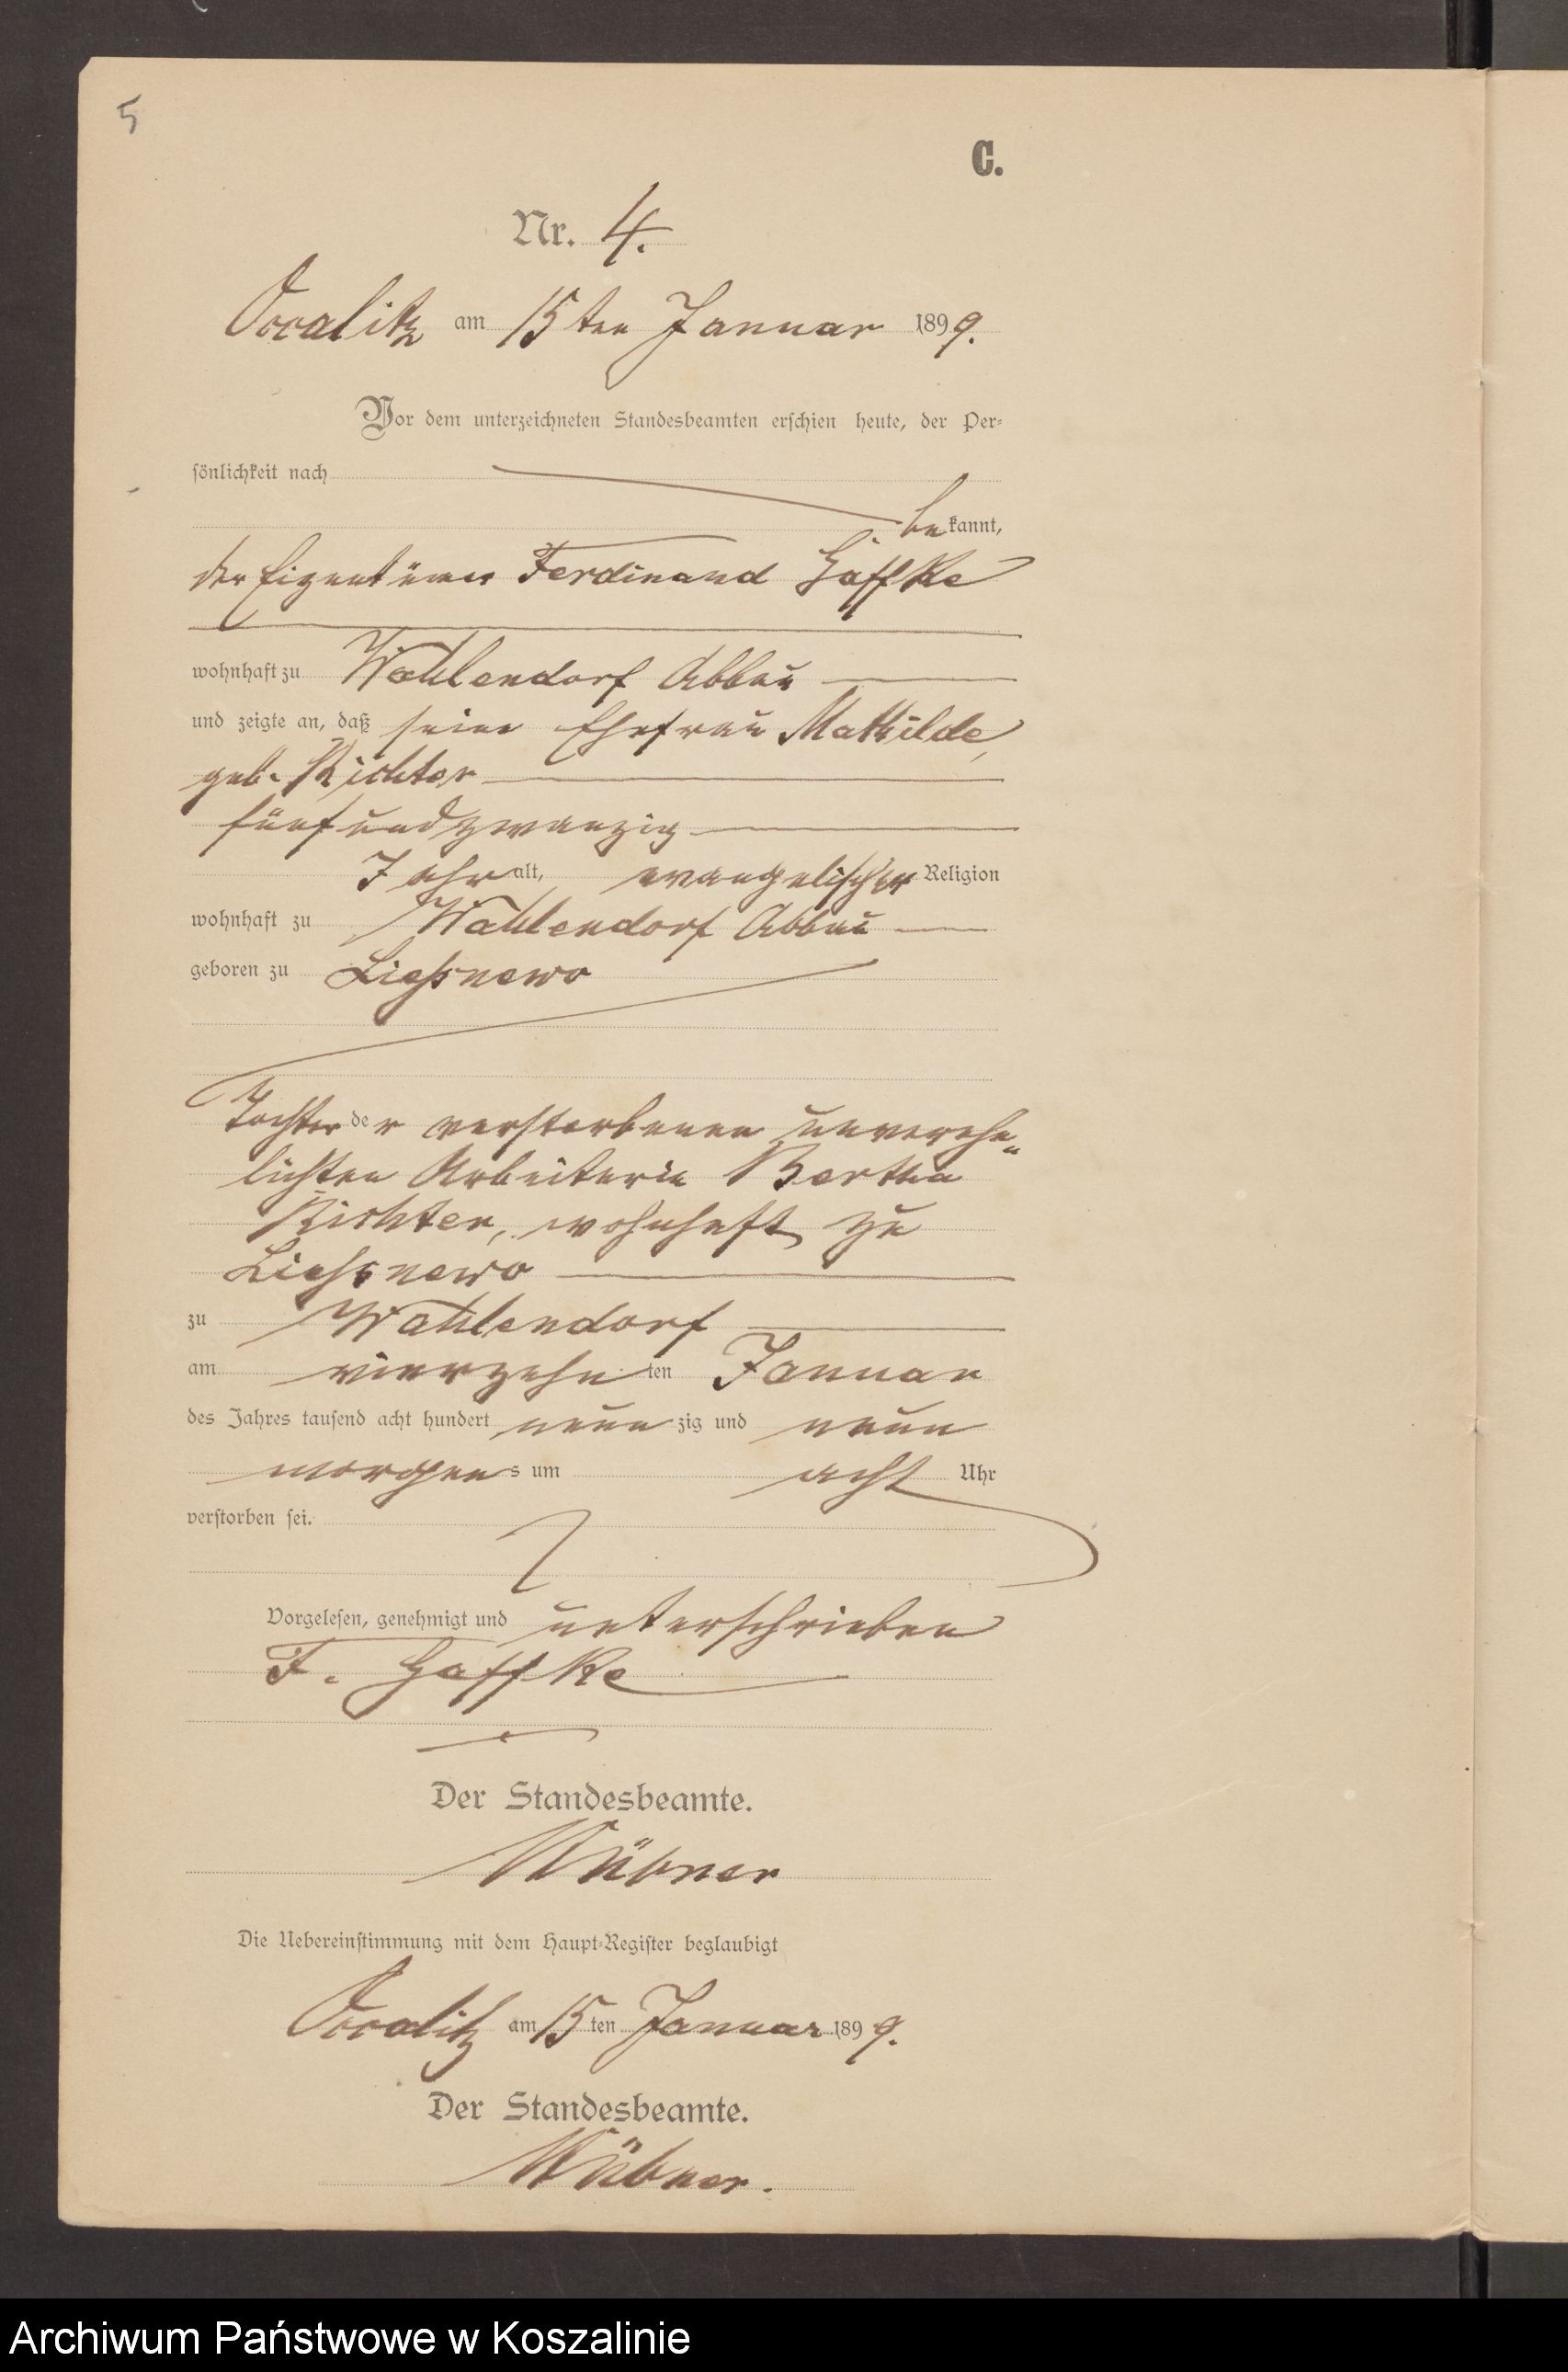 5
C.
Nr. 4.
Occalitz am 15ten Januar 1899.
Vor dem unterzeichneten Standesbeamten erschien heute, der Per-
sönlichkeit nach
bekannt,
der Eigentümer Ferdinand Gaffke
wohnhaft zu Wahlendorf Abbau
und zeigte an, daß seine Ehefrau Mathilde,
geb. Richter
fünfundzwanzig
Jahr alt, evangelischer Religion
wohnhaft zu Wahlendorf Abbau
geboren zu Liessnewo
Tochter der verstorbenen unverehe-
lichten Arbeiterin Bertha
Richter, wohnhaft zu
Liessnewo
zu Wahlendorf
am vierzehnten Januar
des Jahres tausend acht hundert neunzig und neun
morgens um acht Uhr
verstorben sei.
Vorgelesen, genehmigt und unterschrieben
F. Gaffke
Der Standesbeamte.
Die Uebereinstimmung mit dem Haupt-Register beglaubigt
Occalitz am 15ten Januar 1899.
Der Standesbeamte.
Archiwum Państwowe w Koszalinie